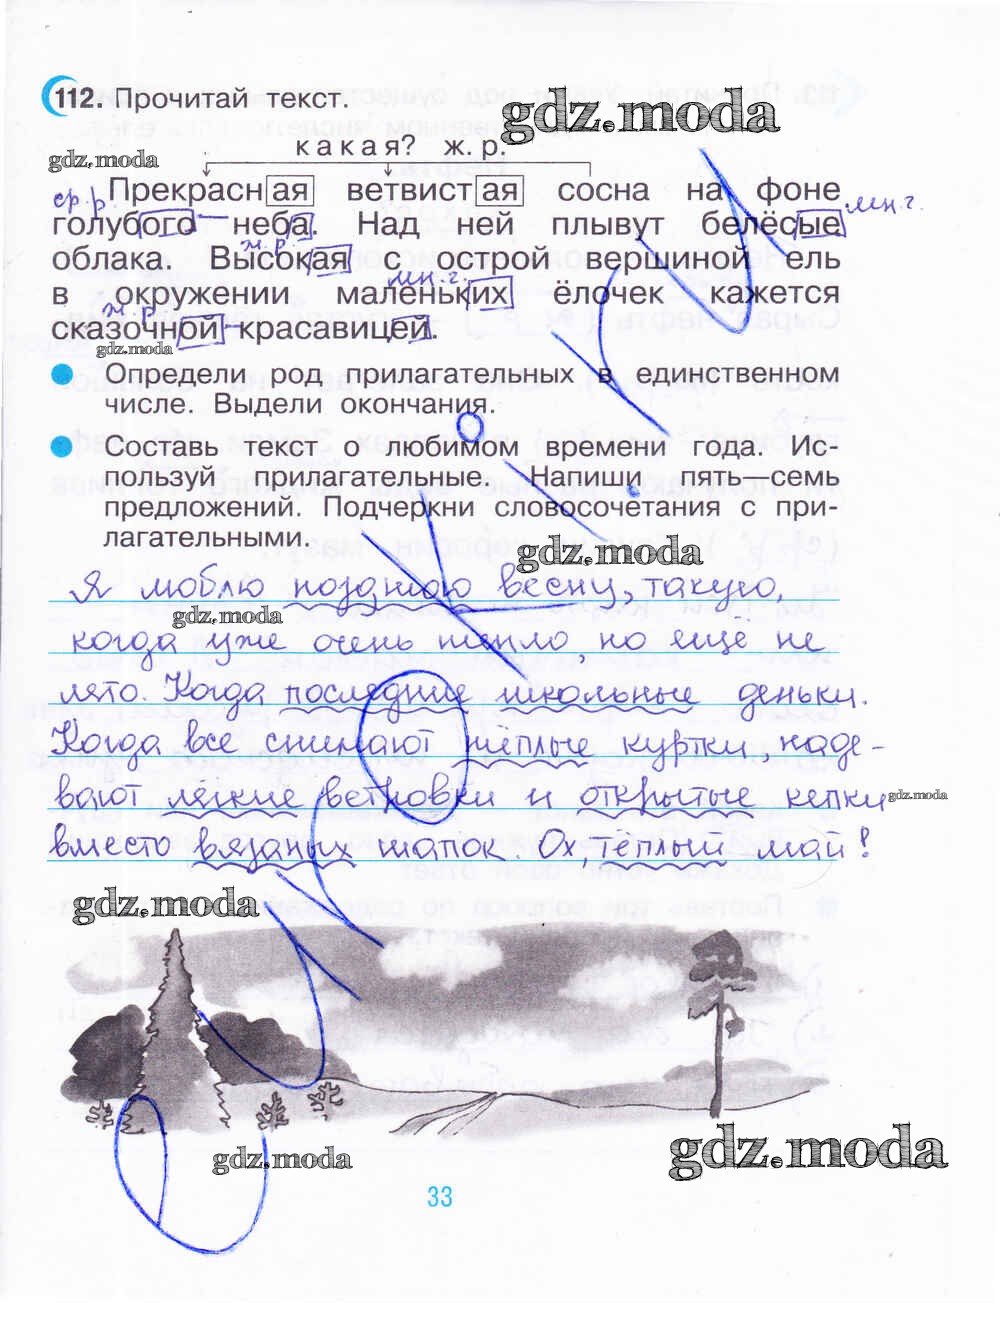 112. Прочитай текст.
gdz.moda
какая? ж. р.
gdz.moda
ср.р.
Прекрасная ветвистая сосна на фоне
мн.ч.
голубого неба. Над ней плывут белёсые
ж.р.
облака. Высокая с острой вершиной ель
мн.ч.
в окружении маленьких ёлочек кажется
ж.р.
сказочной красавицей.
gdz.moda
Определи род прилагательных в единственном
числе. Выдели окончания.
Составь текст о любимом времени года. Ис-
пользуй прилагательные. Напиши пять—семь
предложений. Подчеркни словосочетания с при-
лагательными.
gdz.moda
Я люблю позднюю весну, такую,
gdz.moda
когда уже очень тепло, но ещё не
лято. Когда последние школьные деньки.
Когда все снимают тёплые куртки, наде-
вают лёгкие ветровки и открытые кепки
gdz.moda
вместо вязаных шапок. Ох, тёплый май!
gdz.moda
gdz.moda
gdz.moda
33